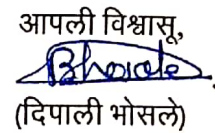 आपली विश्वासू,
Bhosale
(दिपाली भोसले)